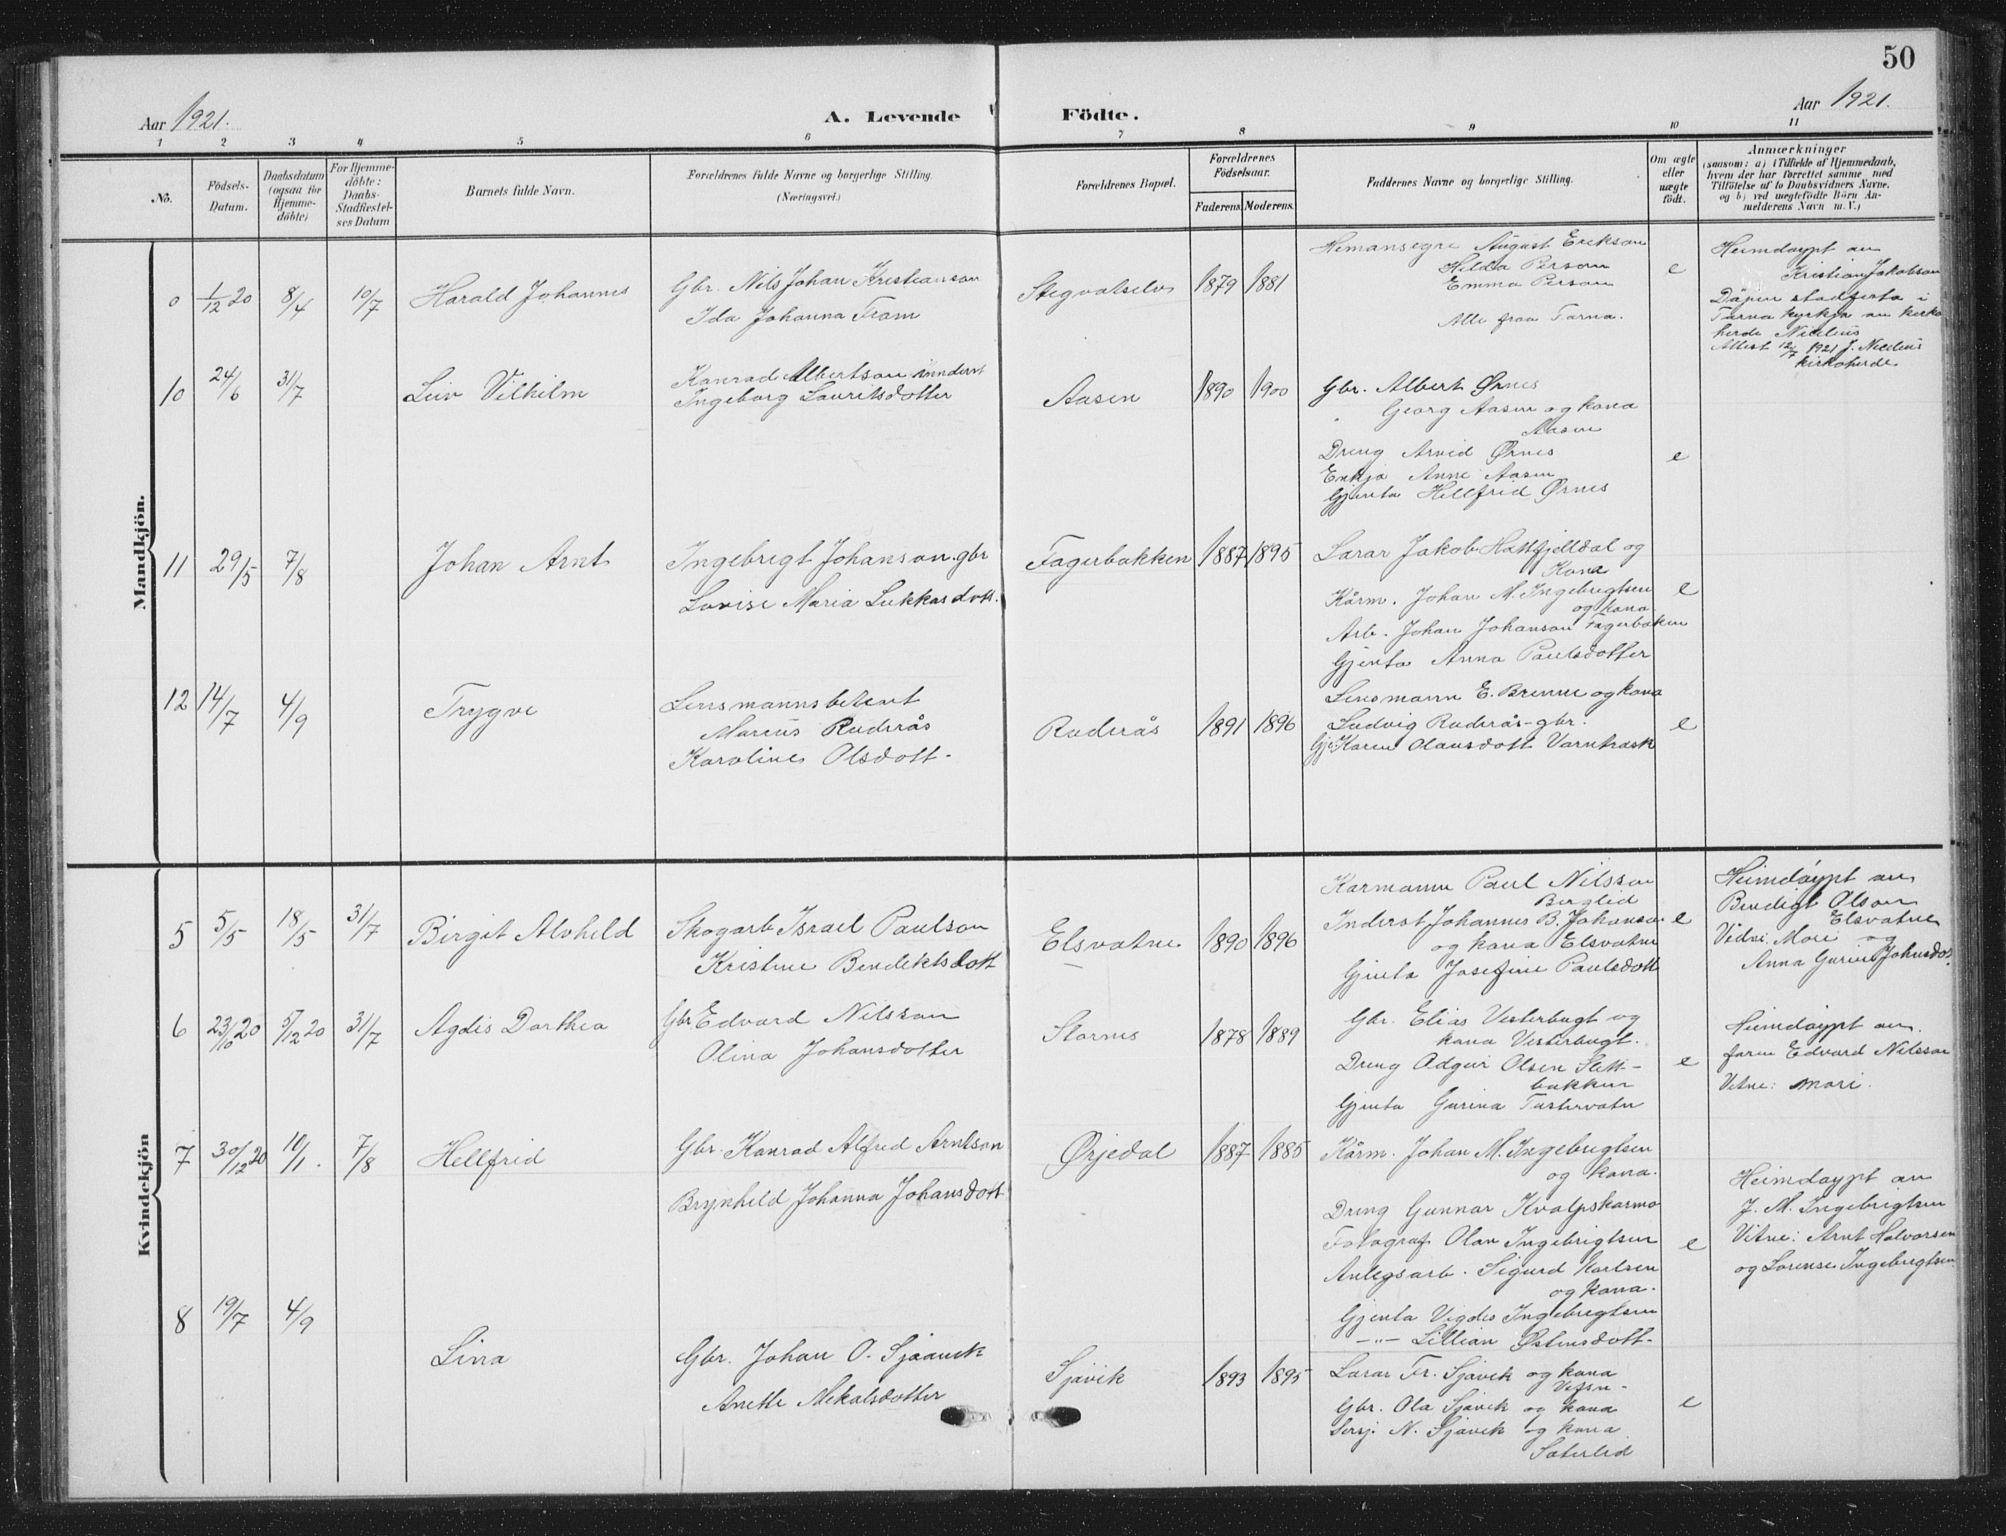 50
Aar 1921.
A. Levende Födte.
Aar 1921.
1 2 3 4 5 6 7 8 9 10 11
No.
Födsels-
Datum.
Daabsdatum
(ogsaa for
Hjemme-
döbte)
For Hjemme-
döbte:
Daabs-
Stadfæstel-
ses Datum
Barnets fulde Navn.
Forældrenes fulde Navne og borgerlige Stilling.
(Næringsvei.)
Forældrenes Bopæl.
Forældrenes
Födselsaar.
Faderens. Moderens.
Faddernes Navne og borgerlige Stilling.
Om ægte
eller
uægte
födt.
Anmærkninger
(saasom: a) i Tilfælde af Hjemmedaab,
hvem der har forrettet samme med
Tilföielse af to Daabsvidners Navne,
og b) ved uægtefödte Börn An-
melderens Navn m. V.)
Mandkjön.
1/12 20 8/4 10/7
Harald Johannes
Gbr. Nils Johan Kristianson
Ida Johanna Fram
Stegvatselv
1879 1881
Hemansegre August Erikson
Hilda Person
Emma Person
Alle fraa Tarna.
e
Heimdøypt av
Kristian Jakobson
Dåpen stadfesta i
Tarna kyrkja av kirko
herde
Attest 12/7 1921 J.
kirkoherde
10 24/6 31/7
Leiv Vilhilm
Konrad Albertson innderst
Ingeborg Lauritsdotter
Aasen
1890 1900
Gbr. Albert Ørnes
Georg Aasen og kona
Aasen
Dreng Arvid Ørnes
Enkja Anne Aasen
Gjenta Hillfrid Ørnes
e
11 29/5 7/8
Johan Arnt
Ingebrigt Johanson gbr
Lovise Maria Lukkasdott.
Fagerbakken
1887 1895
Lærar Jakob Hattfjelldal og
Kona
Kårm. Johan M. Ingebrigtsen
og kona
Arb. Johan Johanson Fagerbaken
Gjenta Anna Paulsdotter
e
12 14/7 4/9
Trygve
Lensmannsbetent
Marius Ruderås
Karolines Olsdott-
Ruderås
1891 1896
Lensmann E. Brenne og kona
Ludvig Ruderås-gbr.
Gje. Karen Olausdott Varntræsk
e
Kvindekjön
5 5/5 18/5 31/7
Birgit Alvheld
Skogarb Israel Paulson
Kristine Bendektsdott
Elsvatne
1890 1896
Karmann Paul Nilsson
Berglid
Inderst Johannes B. Johanson
og kona Elsvatne
Gjenta Josefine Paulsdott
e
Heimdøypt av
Bendigt Olson
Elsvatne
Vidne. Mori og
Anna Gurine Johnsdot.
6 23/10 20 5/12 20 31/7
Agdis Dorthea
Gbr Edvard Nilsson
Olina Johansdotter
Stornes
1878 1889
Gbr. Elias Vesterbugt og
kona Vesterbugt.
Dreng Odgeir Olsen Slett-
bakken
Gjenta Gurina Tustervatn
e
Heimdøypt av.
faren Edvard Nilsson
Vitne: mori.
7 30/12 20 10/1. 7/8
Hellfrid
Gbr. Konrad Alfred Arntson
Brynheld Johanna Johansdott
Ørjedal
1887 1885
Kårm. Johan M. Ingebrigtsen
og kona.
Dreng Gunnar Kvalpskarmo
Fotograf Olav Ingebrigtsen
Anlegsarb. Sigurd Karlsen
og kona.
Gjenta Vigdis Ingebrigtsen
—"— Lillian Østensdott-
e
Heimdøypt av
J. M. Ingebrigtsen
Vitne: Arnt Halvorsen
og Lorense Ingebrigtsen
8 19/7 4/9
Lina
Gbr. Johan O. Sjåvik
Anette Mekalsdotter
Sjåvik
1893 1895
Lærar Fr. Sjåvik og kona
Vefsn-
Gbr. Ola Sjåvik og kona
Sersj. N. Sjåvik og kona
Sæterlid
e